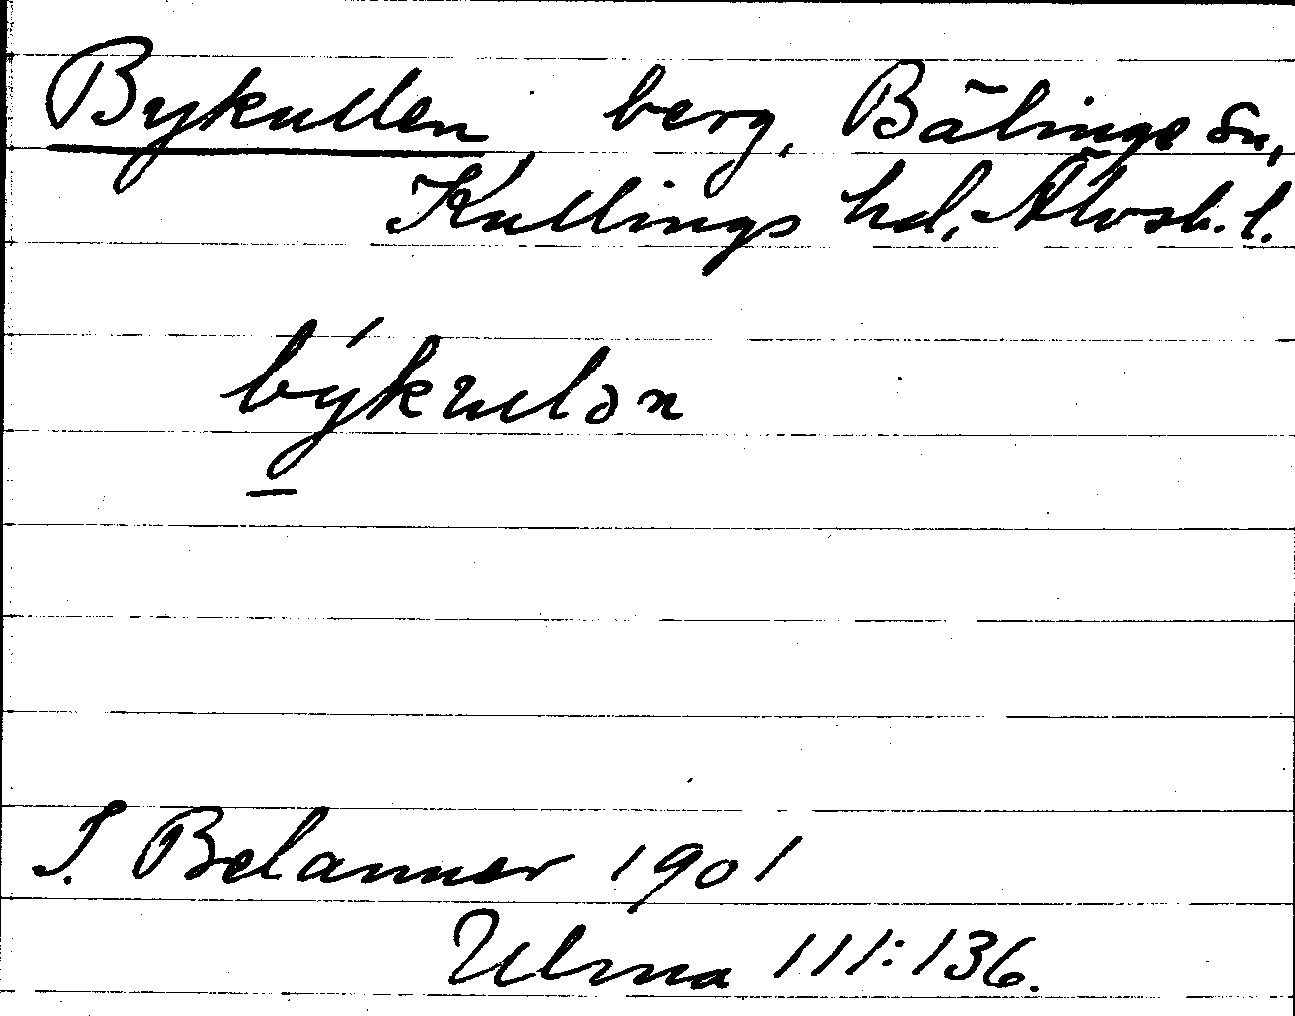 Bykullen berg, Bälinge sn,
Kullings hd, Älvsb. l.
býkulən
J. Belanner 1901
Ulma 111:136.